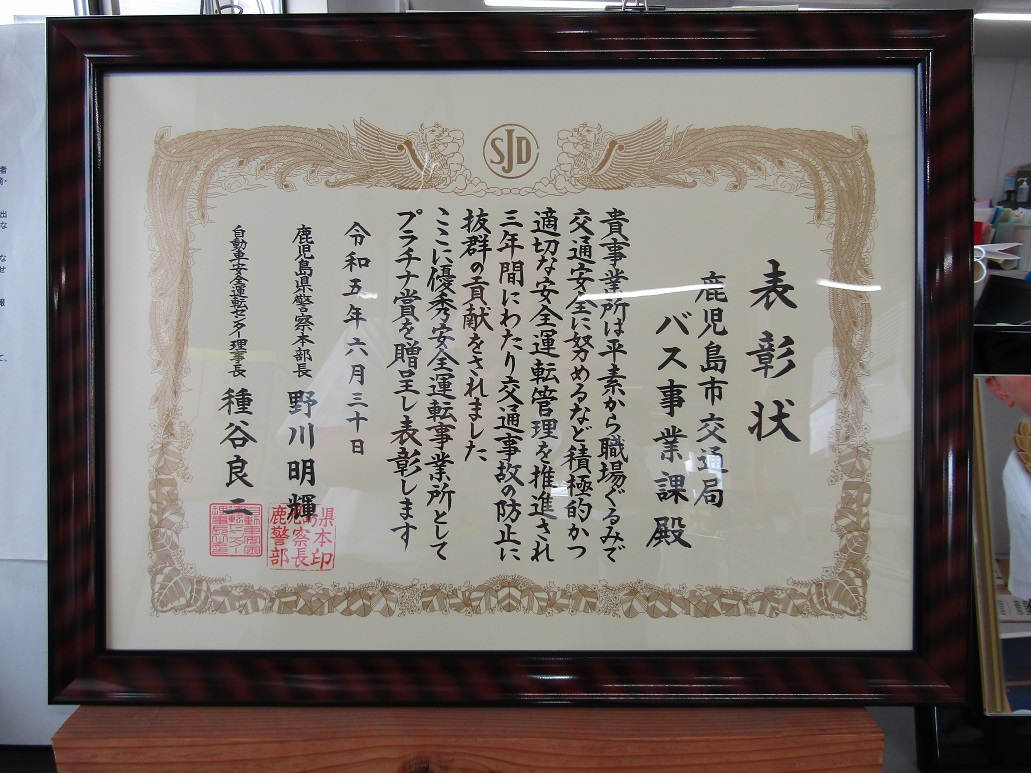 SJD
表彰状
鹿児島市交通局
バス事業課殿
貴事業所は平素から職場ぐるみで
交通安全に努めるなど積極的かつ
適切な安全運転管理を推進され
三年間にわたり交通事故の防止に
抜群の貢献をされました
ここに優秀安全運転事業所として
プラチナ賞を贈呈し表彰します
令和五年六月三十日
鹿児島県警察本部長 野川明輝
自動車安全運転センター理事長 種谷良二